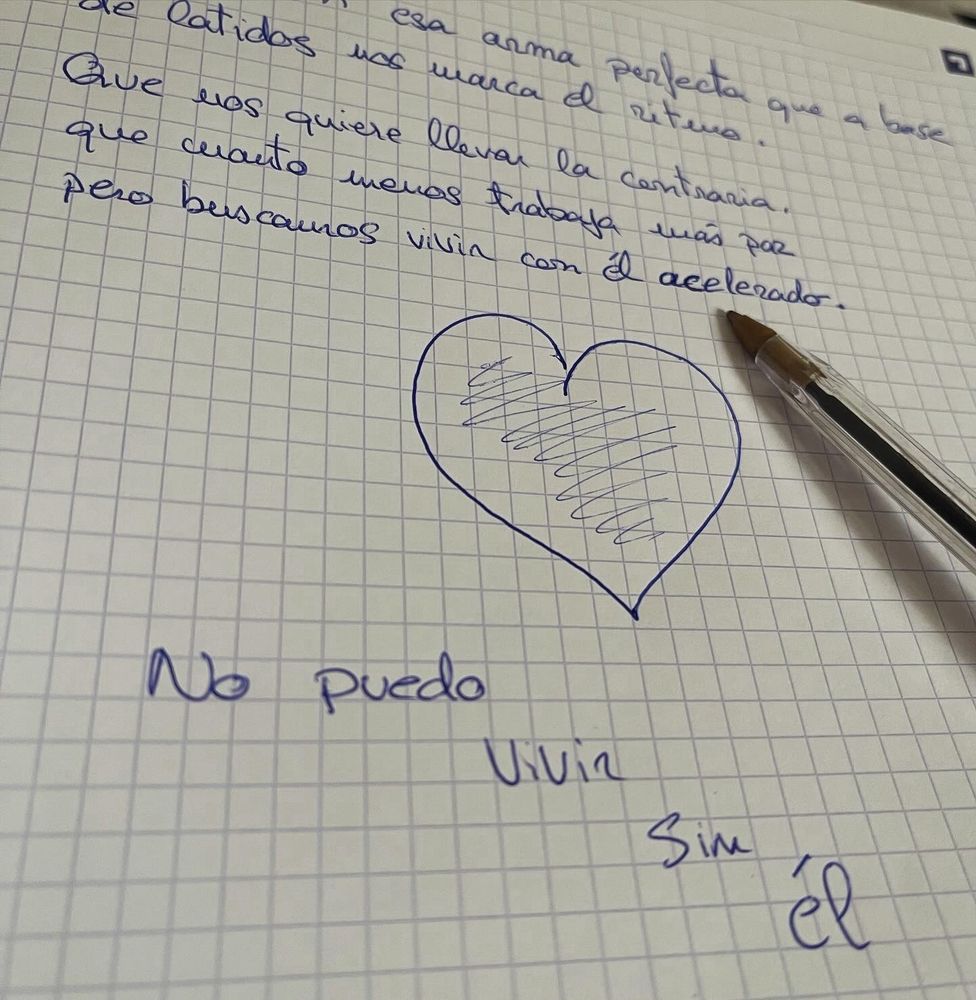 esa arma perfecta que a base
de latidos nos marca el ritmo.
Que nos quiere llevar la contraria.
que cuanto menos trabaja más paz
pero buscamos vivir con él acelerado.
No puedo
vivir
sin
él